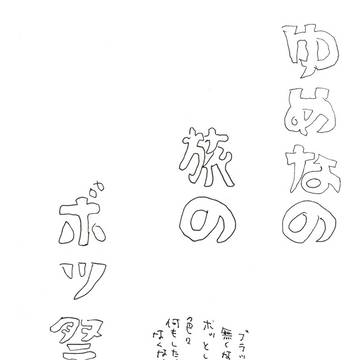 ゆめなの
旅の
ボツ祭
ブラッ
無くな
ボッとし
色々
何もした
なくな